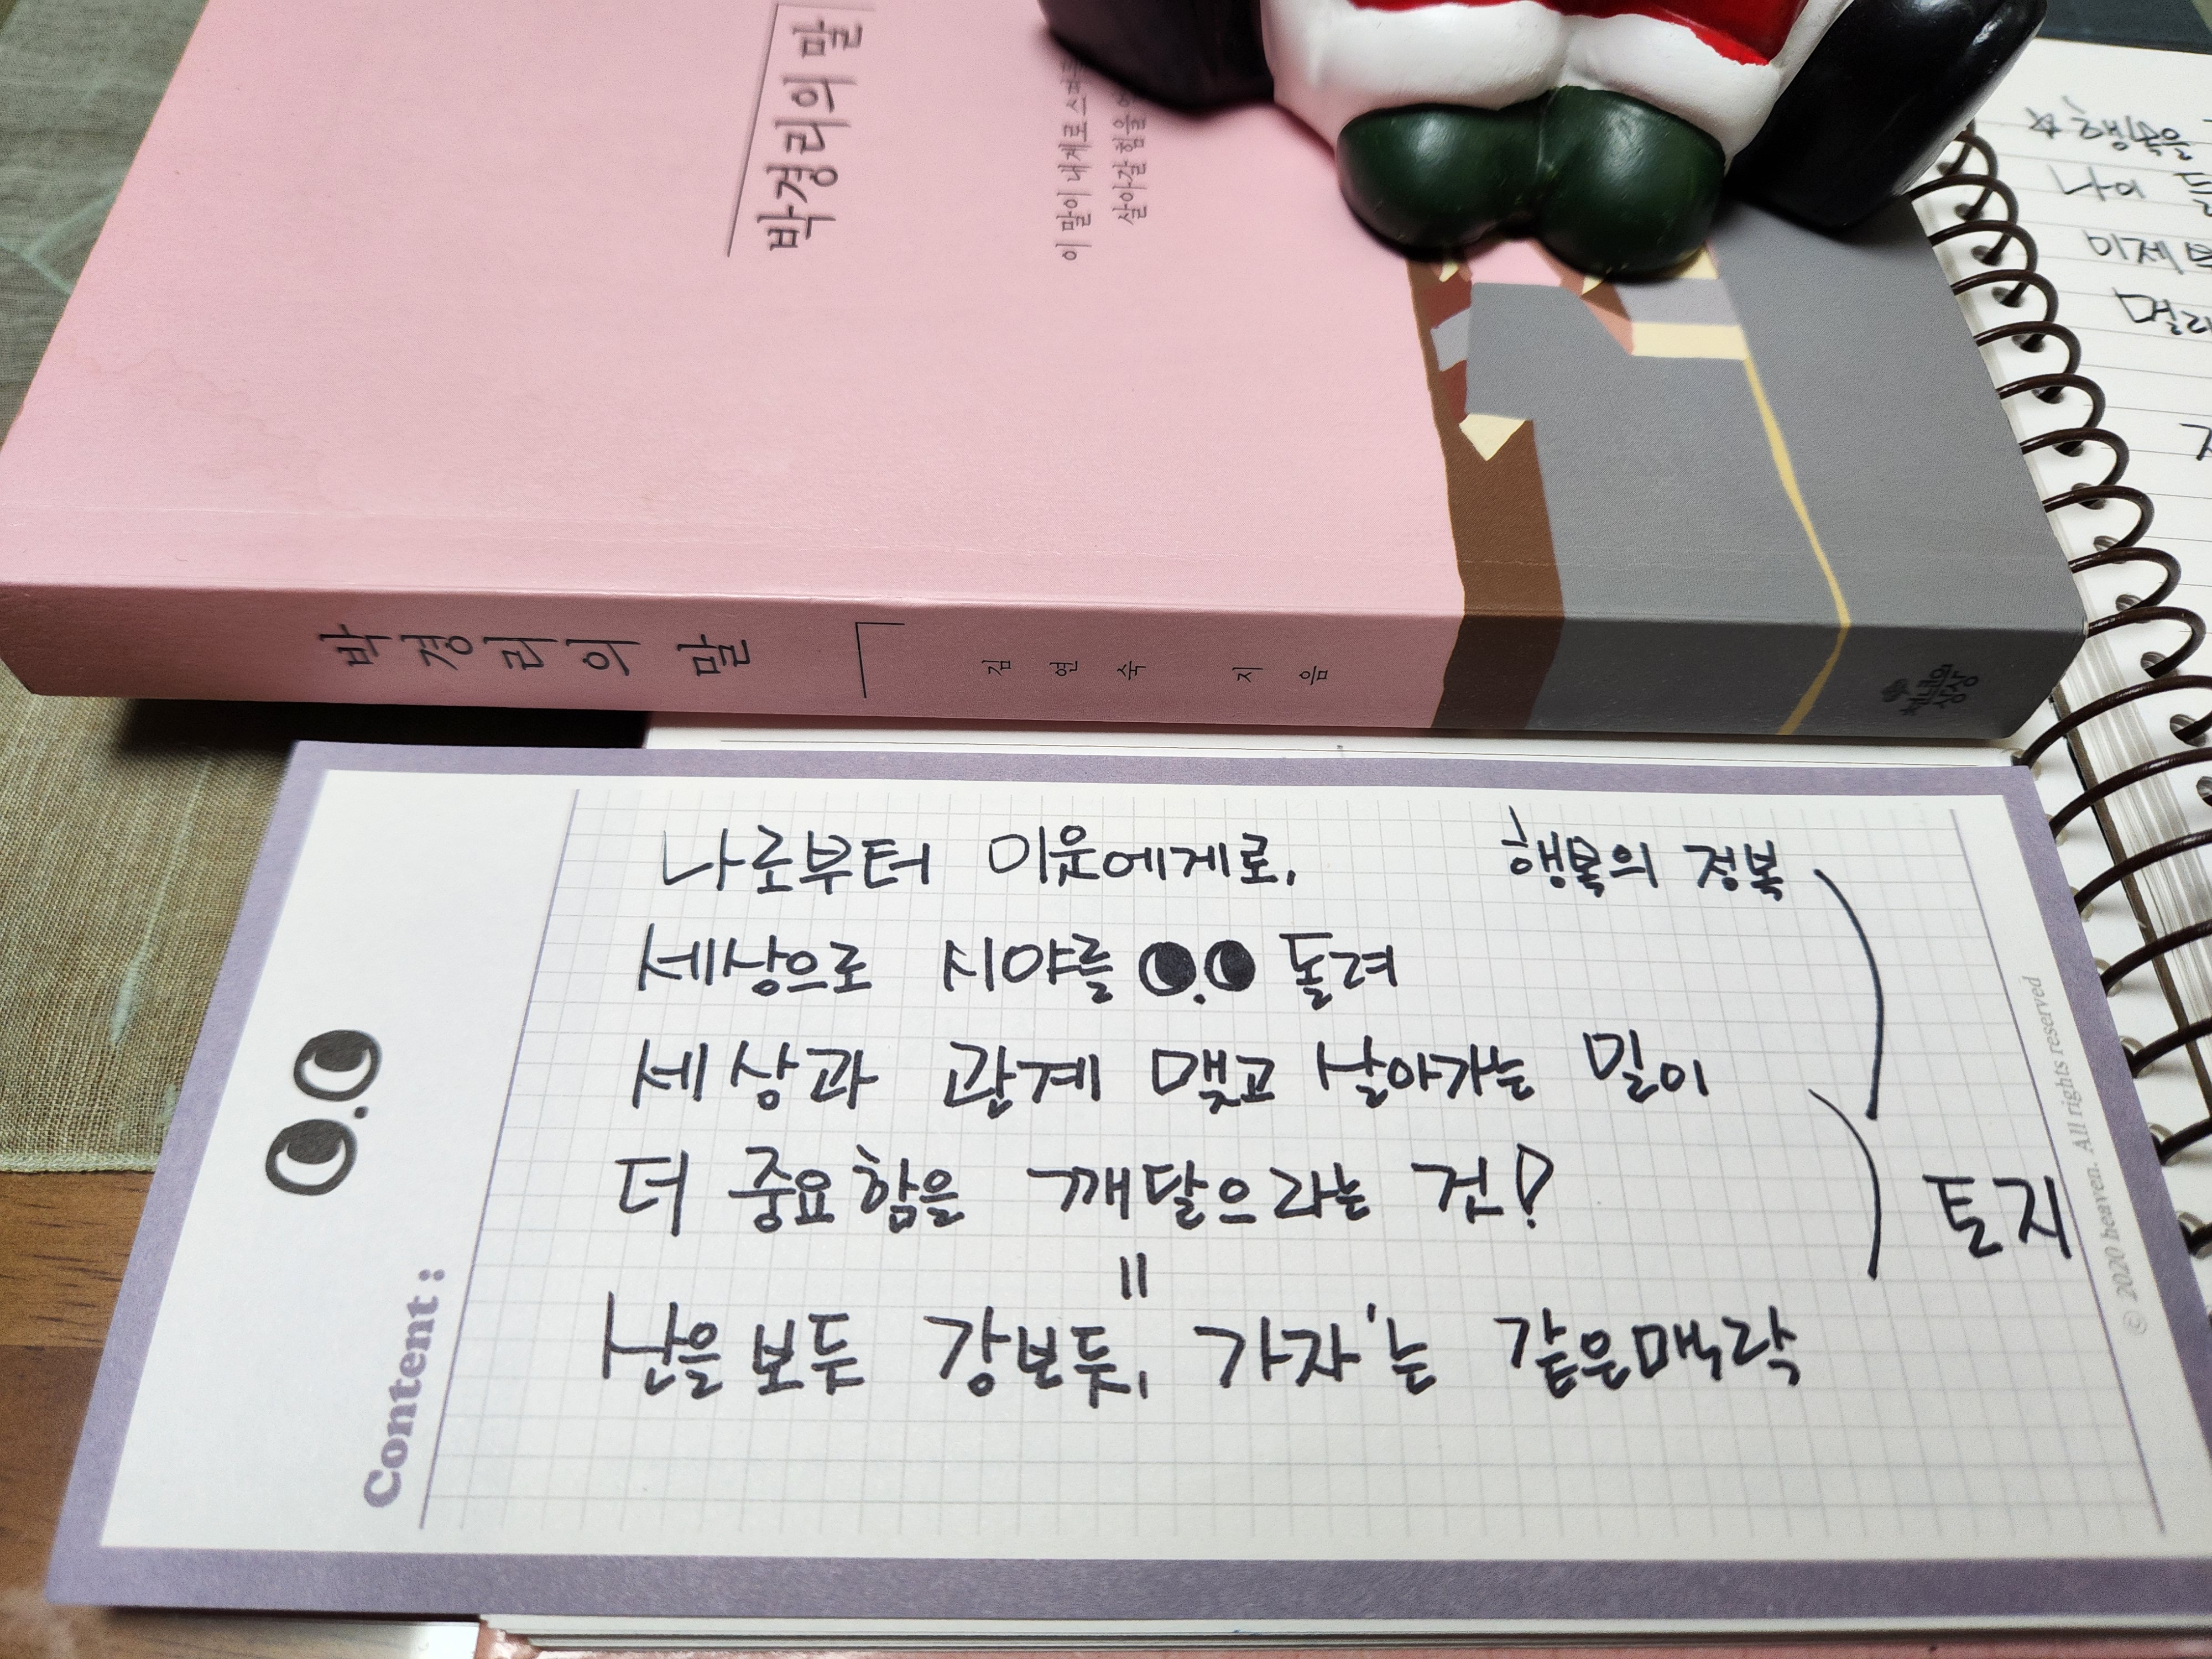 박경리의 말
이 말이 내게로
살아갈 힘을
박경리의 말
김연숙 지음
천년의상상
☆ 행복을
나이
이제
멀리
나로부터 이웃에게로, 행복의 정복
세상으로 시야를 돌려
세상과 관계 맺고 살아가는 일이
더 중요함을 깨달으라는 것!
=
산을 보듯 강 보듯, 가자'는 같은 맥락
토지
Content :
© 2020 heaven. All rights reserved